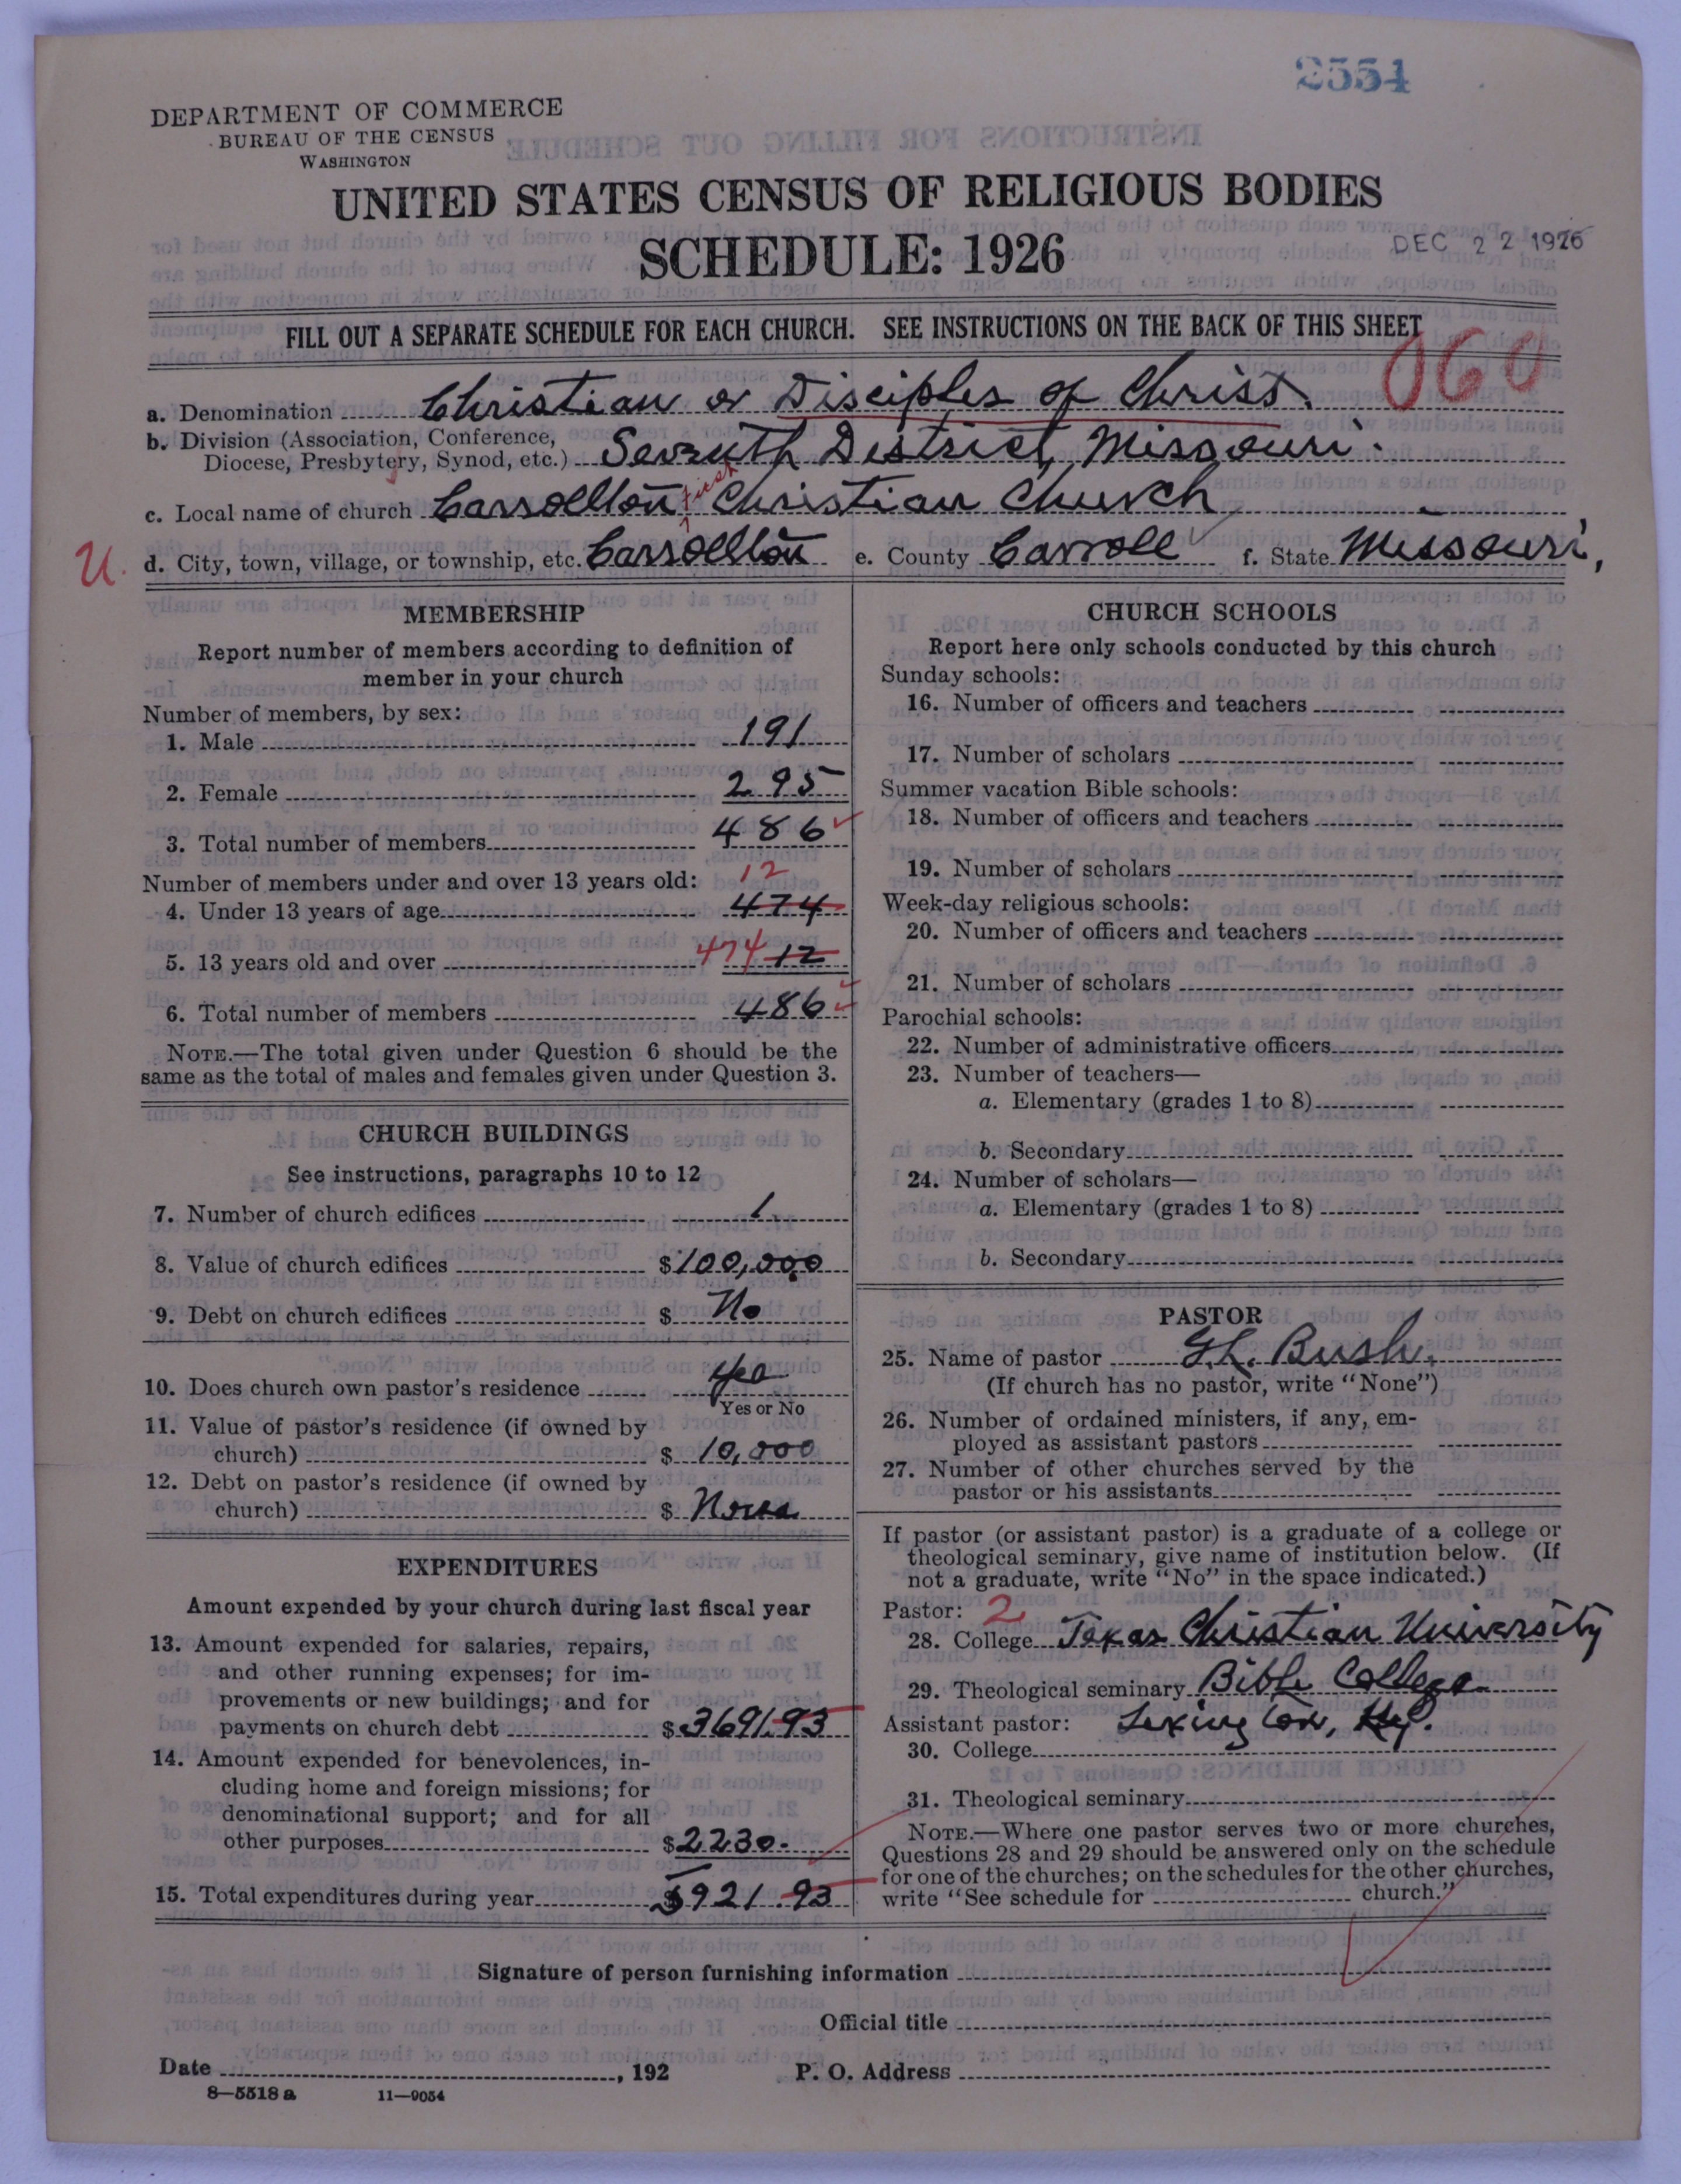 2554
DEPARTMENT OF COMMERCE
BUREAU OF THE CENSUS
WASHINGTON
UNITED STATES CENSUS OF RELIGIOUS BODIES
SCHEDULE: 1926
DEC 22 1926
FILL OUT A SEPARATE SCHEDULE FOR EACH CHURCH. SEE INSTRUCTIONS ON THE BACK OF THIS SHEET
060
a. Denomination Christian or Disciples of Christ.
b. Division (Association, Conference,
Diocese, Presbytery, Synod, etc.) Seventh District, Missouri.
c. Local name of church Carrollton first Christian Church
U. d. City, town, village, or township, etc. Carrollton e. County Carroll f. State Missouri,
MEMBERSHIP
Report number of members according to definition of
member in your church
Number of members, by sex:
1. Male 191
2. Female 295
3. Total number of members 486
Number of members under and over 13 years old: 12
4. Under 13 years of age 474
5. 13 years old and over 474 12
6. Total number of members 486
NOTE.—The total given under Question 6 should be the
same as the total of males and females given under Question 3.
CHURCH BUILDINGS
See instructions, paragraphs 10 to 12
7. Number of church edifices 1
8. Value of church edifices $100,000
9. Debt on church edifices $ No
10. Does church own pastor's residence Yes
Yes or No
11. Value of pastor's residence (if owned by
church) $ 10,000
12. Debt on pastor's residence (if owned by
church) $ None
EXPENDITURES
Amount expended by your church during last fiscal year
13. Amount expended for salaries, repairs,
and other running expenses; for im-
provements or new buildings; and for
payments on church debt $3691.93
14. Amount expended for benevolences, in-
cluding home and foreign missions; for
denominational support; and for all
other purposes $2230.
15. Total expenditures during year $5921.93
CHURCH SCHOOLS
Report here only schools conducted by this church
Sunday schools:
16. Number of officers and teachers
17. Number of scholars
Summer vacation Bible schools:
18. Number of officers and teachers
19. Number of scholars
Week-day religious schools:
20. Number of officers and teachers
21. Number of scholars
Parochial schools:
22. Number of administrative officers
23. Number of teachers—
a. Elementary (grades 1 to 8)
b. Secondary
24. Number of scholars—
a. Elementary (grades 1 to 8)
b. Secondary
PASTOR
25. Name of pastor G.L. Bush.
(If church has no pastor, write "None")
26. Number of ordained ministers, if any, em-
ployed as assistant pastors
27. Number of other churches served by the
pastor or his assistants
If pastor (or assistant pastor) is a graduate of a college or
theological seminary, give name of institution below. (If
not a graduate, write "No" in the space indicated.)
Pastor: 2
28. College Texas Christian University
29. Theological seminary Bible College
Assistant pastor: Lexington, Ky.
30. College
31. Theological seminary
NOTE.—Where one pastor serves two or more churches,
Questions 28 and 29 should be answered only on the schedule
for one of the churches; on the schedules for the other churches,
write "See schedule for church."
Signature of person furnishing information
Official title
Date , 192 P. O. Address
8—5518 a 11—9054